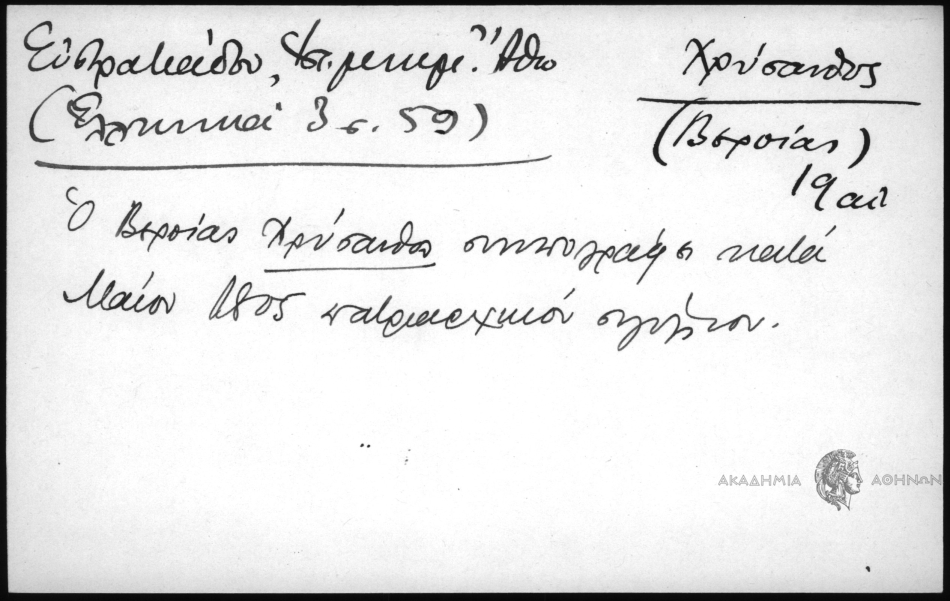 Εὐστρατιάδου, Ἱστ. μνημ. Ἄθω
(Ἑλληνικά 3 σ. 59)
Χρύσανθος
(Βεροίας)
19 αἰ
Ὁ Βεροίας Χρύσανθος συνυπογράφει κατά
Μάϊον 1805 πατριαρχικόν σιγίλλιον.
ΑΚΑΔΗΜΙΑ ΑΘΗΝΩΝ